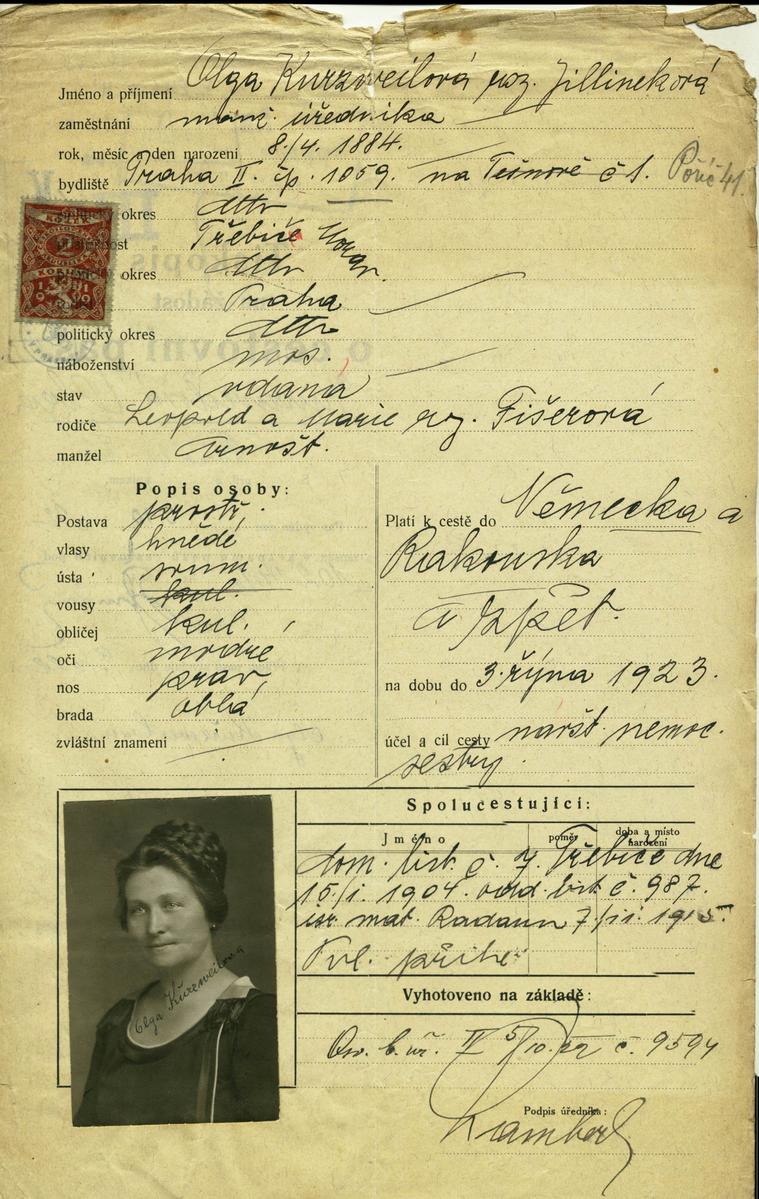 Jméno a příjmení Olga Kurzweilová roz. Jillineková
zaměstnání manž. úředníka
rok, měsíc a den narození 8./4. 1884.
bydliště Praha II. čp. 1059. na Těšnově č 1. Poříč 41.
okres dtto
Třebíč Mor.
okres dtto
Praha
politický okres dtto
náboženství mos.
stav vdaná
rodiče Leopold a Marie roz. Fišerová
manžel Arnošt.
Popis osoby:
Postava prostř.
vlasy hnědé
ústa soum.
vousy kul.
obličej kul.
oči modré
nos prav.
brada oblá
zvláštní znamení
Platí k cestě do Německa a
Rakouska
a zpět.
na dobu do 3. října 1923.
účel a cíl cesty navšt. nemoc.
sestry
Spolucestující:
Jméno poměr doba a místo narození
dom. list. č. 7. Třebíč dne
15./I. 1904. odd. list č. 987.
isr. mat. Radaun 7/II. 1915.
Pol. přihl.
Vyhotoveno na základě:
Os. b. úř. IV 5/10. 22 č. 9594
Podpis úředníka:
Olga Kurzweilova